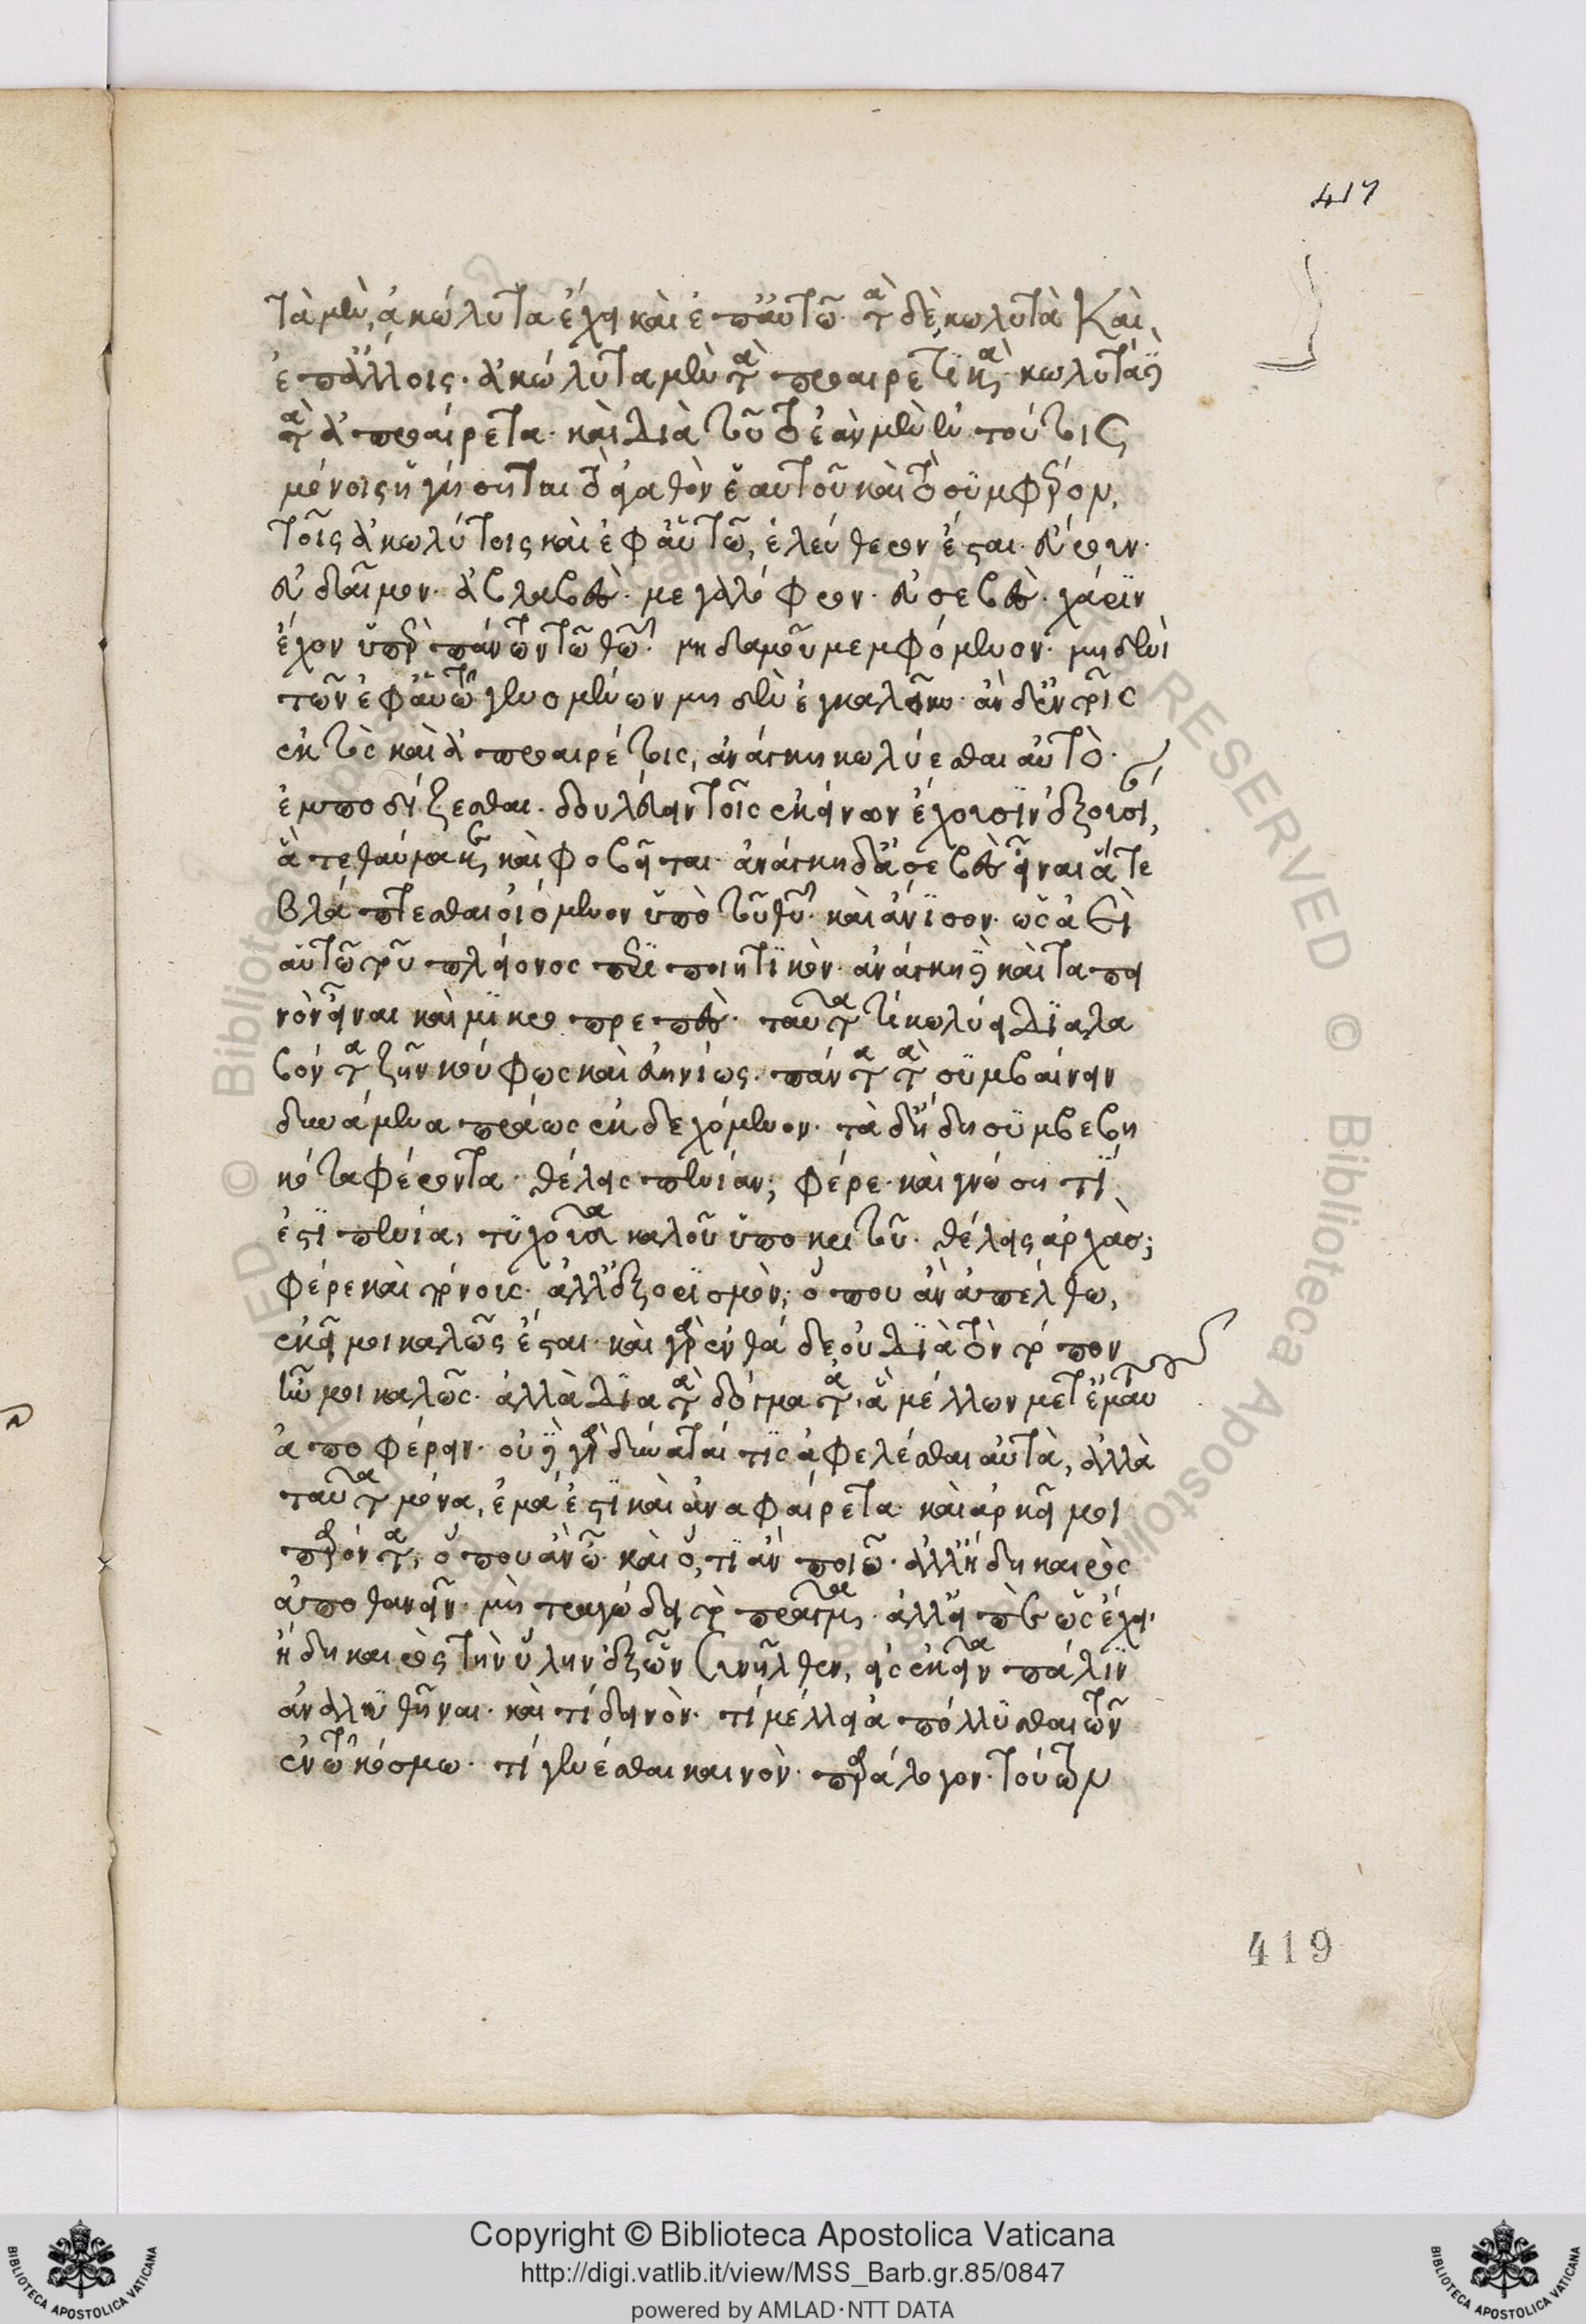 417
τὰ μὲν, ἀκώλυτα ἔχει καὶ ἐπ' αὐτῶ· τὰ δὲ, κωλυτὰ καὶ,
ἐπ' ἄλλοις· ἀκώλυτα μὲν τὰ προαιρετικὰ· κωλυτὰ δὲ
τὰ ἀπροαίρετα· καὶ διὰ τοῦτο ἐὰν μὲν ἐν τούτοις
μόνοις ἡγήσηται τὸ ἀγαθὸν ἑαυτοῦ καὶ τὸ συμφέρον,
τοῖς ἀκωλύτοις καὶ ἐφ' αὑτῶ, ἐλεύθερον ἔσται· εὔρουν·
εὔδαιμον· ἀβλαβὲς· μεγαλόφρον· εὐσεβὲς· χάριν
ἔχον ὑπὲρ πάντων τῶ θεῶ· μηδαμοῦ μεμφόμενον· μηδενὶ
τῶν ἐφ' αὑτῶ γενομένων μηδενὶ ἐγκαλοῦν· ἂν δ' ἐν τοῖς
ἐκτὸς καὶ ἀπροαιρέτοις, ἀνάγκη κωλύεσθαι αὐτὸ·
ἐμποδίζεσθαι· δουλεύειν τοῖς ἐκείνων ἔχουσιν ἐξουσίαν,
ἃ τεθαύμακε καὶ φοβεῖται· ἀνάγκη δ' ἀσεβὲς εἶναι ἅτε
βλάπτεσθαι οἰόμενον ὑπὸ τοῦ θεοῦ· καὶ ἄνισον· ὡς ἀεὶ
αὑτῶ τοῦ πλείονος περιποιητικὸν· ἀνάγκη δὲ καὶ ταπει
νὸν εἶναι καὶ μικροπρεπὲς· ταῦτα τί κωλύει διαλα
βόντα ζῆν κούφως καὶ εὐηνίως· πάντα τὰ συμβαίνειν
δυνάμενα πράως ἐκδεχόμενον· τὰ δ' ἤδη συμβεβη
κότα φέροντα· θέλεις πενίαν; φέρε· καὶ γνώση τί
ἐστὶ πενία, τυχοῦσα καλοῦ ὑποκριτοῦ· θέλεις ἀρχὰς;
φέρε καὶ πόνους· ἀλλ' ἐξορισμὸν; ὅπου ἂν ἀπέλθω,
ἐκεῖ μοι καλῶς ἔσται· καὶ γὰρ ἐνθάδε οὐ διὰ τὸν τόπον
ἦν μοι καλῶς· ἀλλὰ διὰ τὰ δόγματα· ἃ μέλλων μετ' ἐμαυτοῦ
ἀποφέρειν· οὐδὲ γὰρ δύναταί τις ἀφελέσθαι αὐτὰ, ἀλλὰ
ταῦτα μόνα, ἐμά ἐστι καὶ ἀναφαίρετα· καὶ ἀρκεῖ μοι
παρόντα, ὅπου ἂν ὦ· καὶ ὅ,τι ἂν ποιῶ· ἀλλ' ἤδη καιρὸς
ἀποθανεῖν· μὴ τραγώδει τὸ πρᾶγμα· ἀλλ' εἰπὲ ὡς ἔχει·
ἤδη καιρὸς τὴν ὕλην ἐξ ὧν συνῆλθεν, εἰς ἐκεῖνα πάλιν
ἀναλυθῆναι· καὶ τί δεινὸν· τί μέλλει ἀπόλλυσθαι τῶν
ἐν τῶ κόσμω· τί γενέσθαι καινὸν· παράλογον· τούτων
419
Copyright © Biblioteca Apostolica Vaticana
http://digi.vatlib.it/view/MSS_Barb.gr.85/0847
powered by AMLAD·NTT DATA